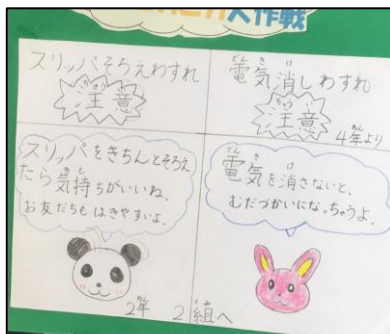 大作戦
スリッパそろえわすれ
注意
電気消しわすれ
注意
4年より
スリッパをきちんとそろえ
たら気持ちがいいね。
お友だちもはきやすいよ。
電気を消さないと、
むだづかいになっちゃうよ。
2年 2組へ